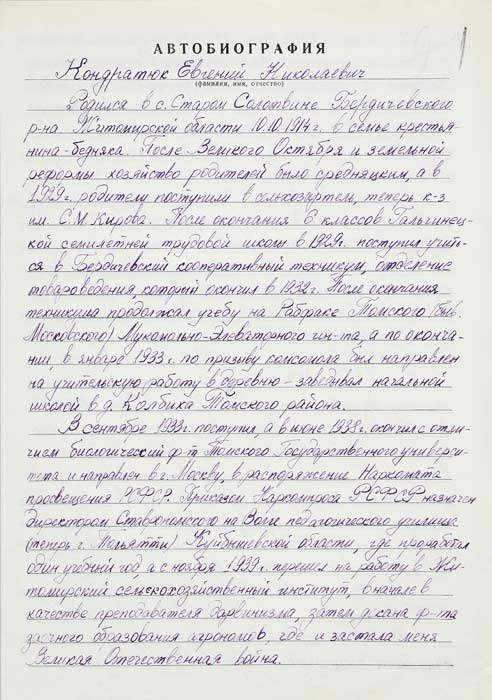 1
АВТОБИОГРАФИЯ
Кондратюк Евгений Николаевич
(фамилия, имя, отчество)
Родился в с. Старом Солотвине Бердичевского
р-на Житомирской области 10.10.1914 г. в семье крестья-
нина-бедняка. После Великого Октября и земельной
реформы хозяйство родителей было средняцким, а в
1929 г. родители поступили в сельхозартель, теперь к-з
им. С.М. Кирова. После окончания 6 классов Гальчинец-
кой семилетней трудовой школы в 1929 г. поступил учить-
ся в Бердичевский кооперативный техникум, отделение
товароведения, который окончил в 1932 г. После окончания
техникума продолжал учебу на Рабфаке Томского (быв.
Московского) Мукомольно-Элеваторного ин-та, а по оконча-
нии, в январе 1933 г. по призыву комсомола был направлен
на учительскую работу в деревню – заведывал начальной
школой в д. Колбика Томского района.
В сентябре 1933 г. поступил, а в июне 1938 г. окончил с отли-
чием биологический ф-т Томского Государственного универси-
тета и направлен в г. Москву, в распоряжение Наркомата
просвещения РСФСР. Приказом Наркомпроса РСФСР назначен
директором Ставропольского на Волге педагогического училища
(теперь г. Тольятти) Куйбышевской области, где проработал
один учебный год, а с ноября 1939 г. перешел на работу в Жи-
томирский сельскохозяйственный институт, вначале в
качестве преподавателя дарвинизма, затем декана ф-та
заочного образования агрономов, где и застала меня
Великая Отечественная война.